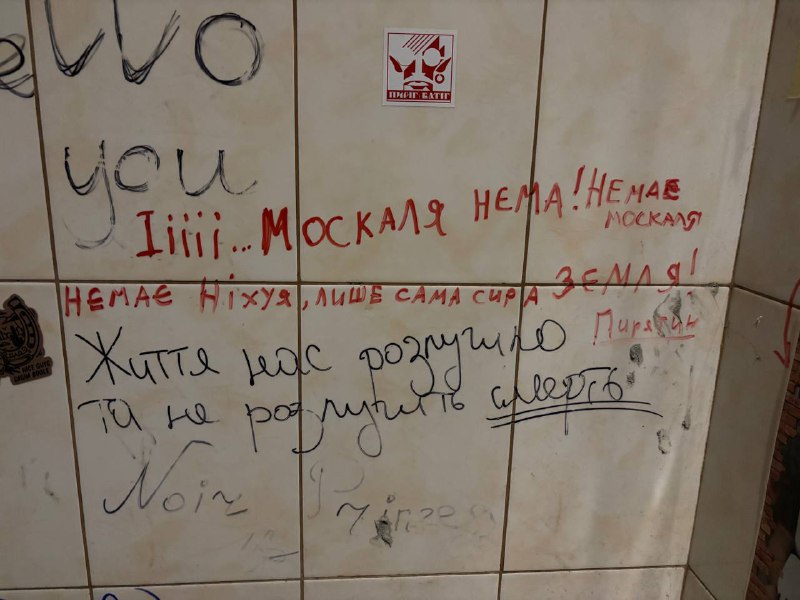 ello
you
ПИРІГ І БАТІГ
Іііії... МОСКАЛЯ НЕМА! НЕМАЕ
МОСКАЛЯ
НЕМАЄ НІХУЯ, ЛИШЕ САМА СИРА ЗЕМЛЯ!
Пирятин
Життя нас розлучило
та не розлучить смерть
Noiz